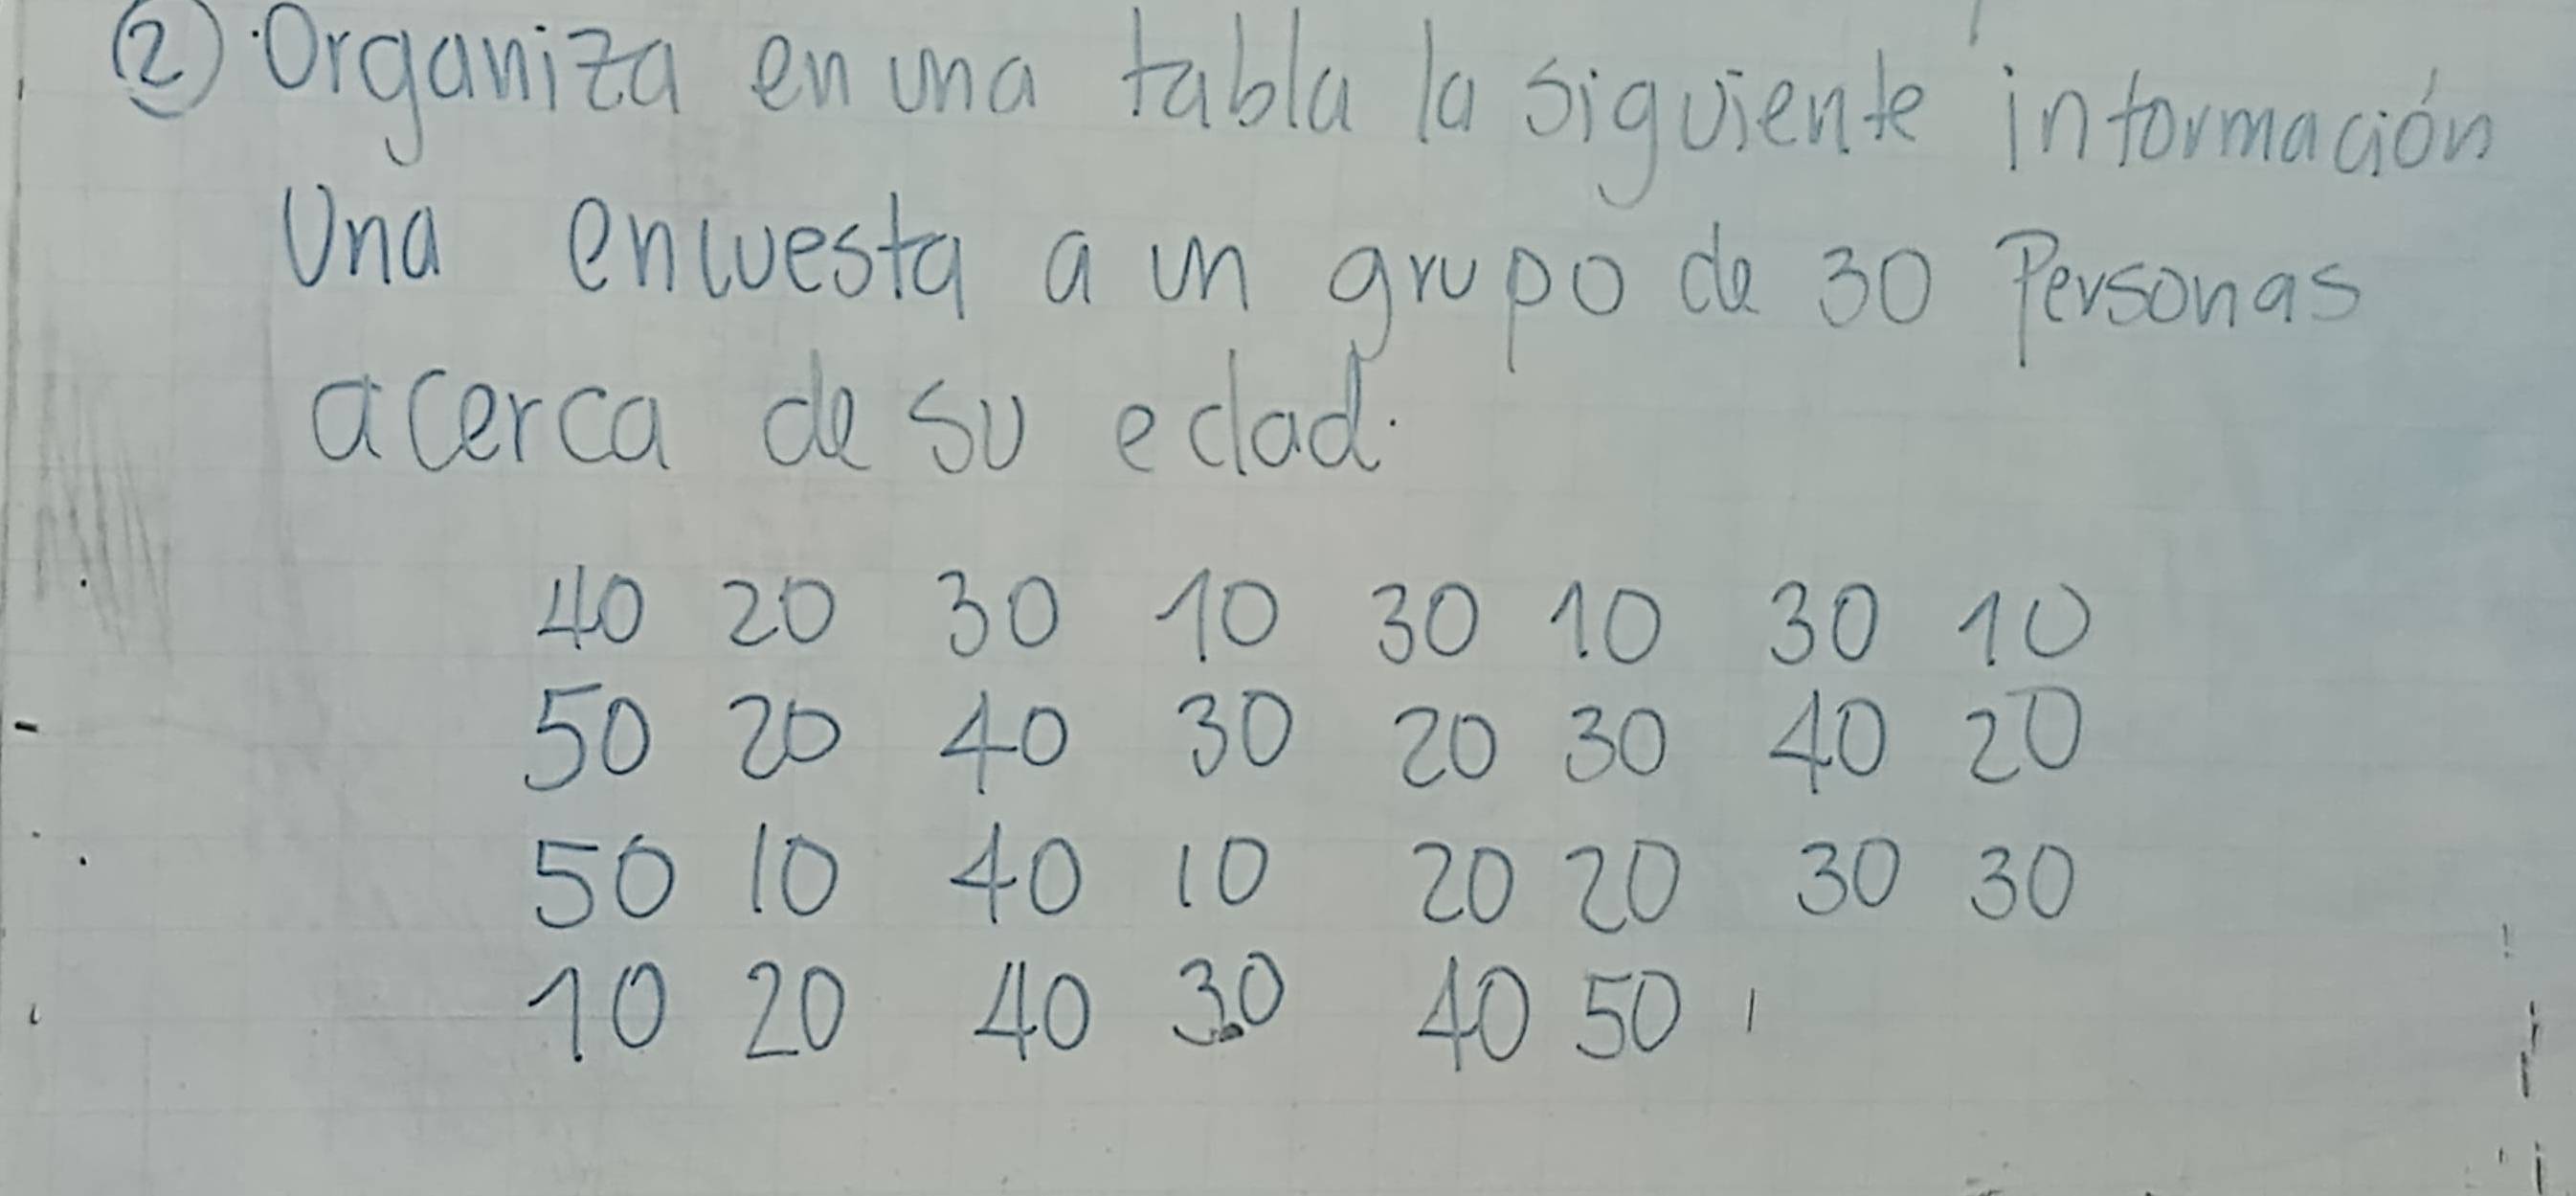 ② Organiza en una tabla la siguiente información
Una encuesta a un grupo de 30 Personas
acerca de su edad.
40 20 30 10 30 10 30 10
50 20 40 30 20 30 40 20
50 10 40 10 20 20 30 30
10 20 40 30 40 50